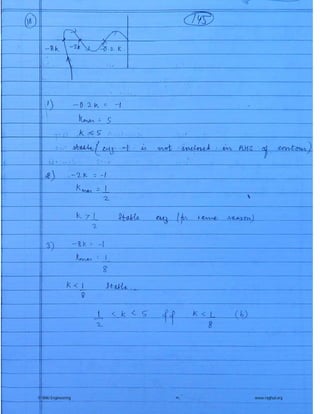 145
-8k -2k -0.2k
1) -0.2k = -1
kmax = 5
k < 5
stable (cuz -1 is not enclosed in RHS of contour)
2) -2k = -1
Kmax = 1/2
k > 1/2 stable cuz (for same reason)
3) -8k = -1
kmax = 1/8
k < 1/8 stable
1/2 < k < 5 ff k < 1/8 (b)
Engineering